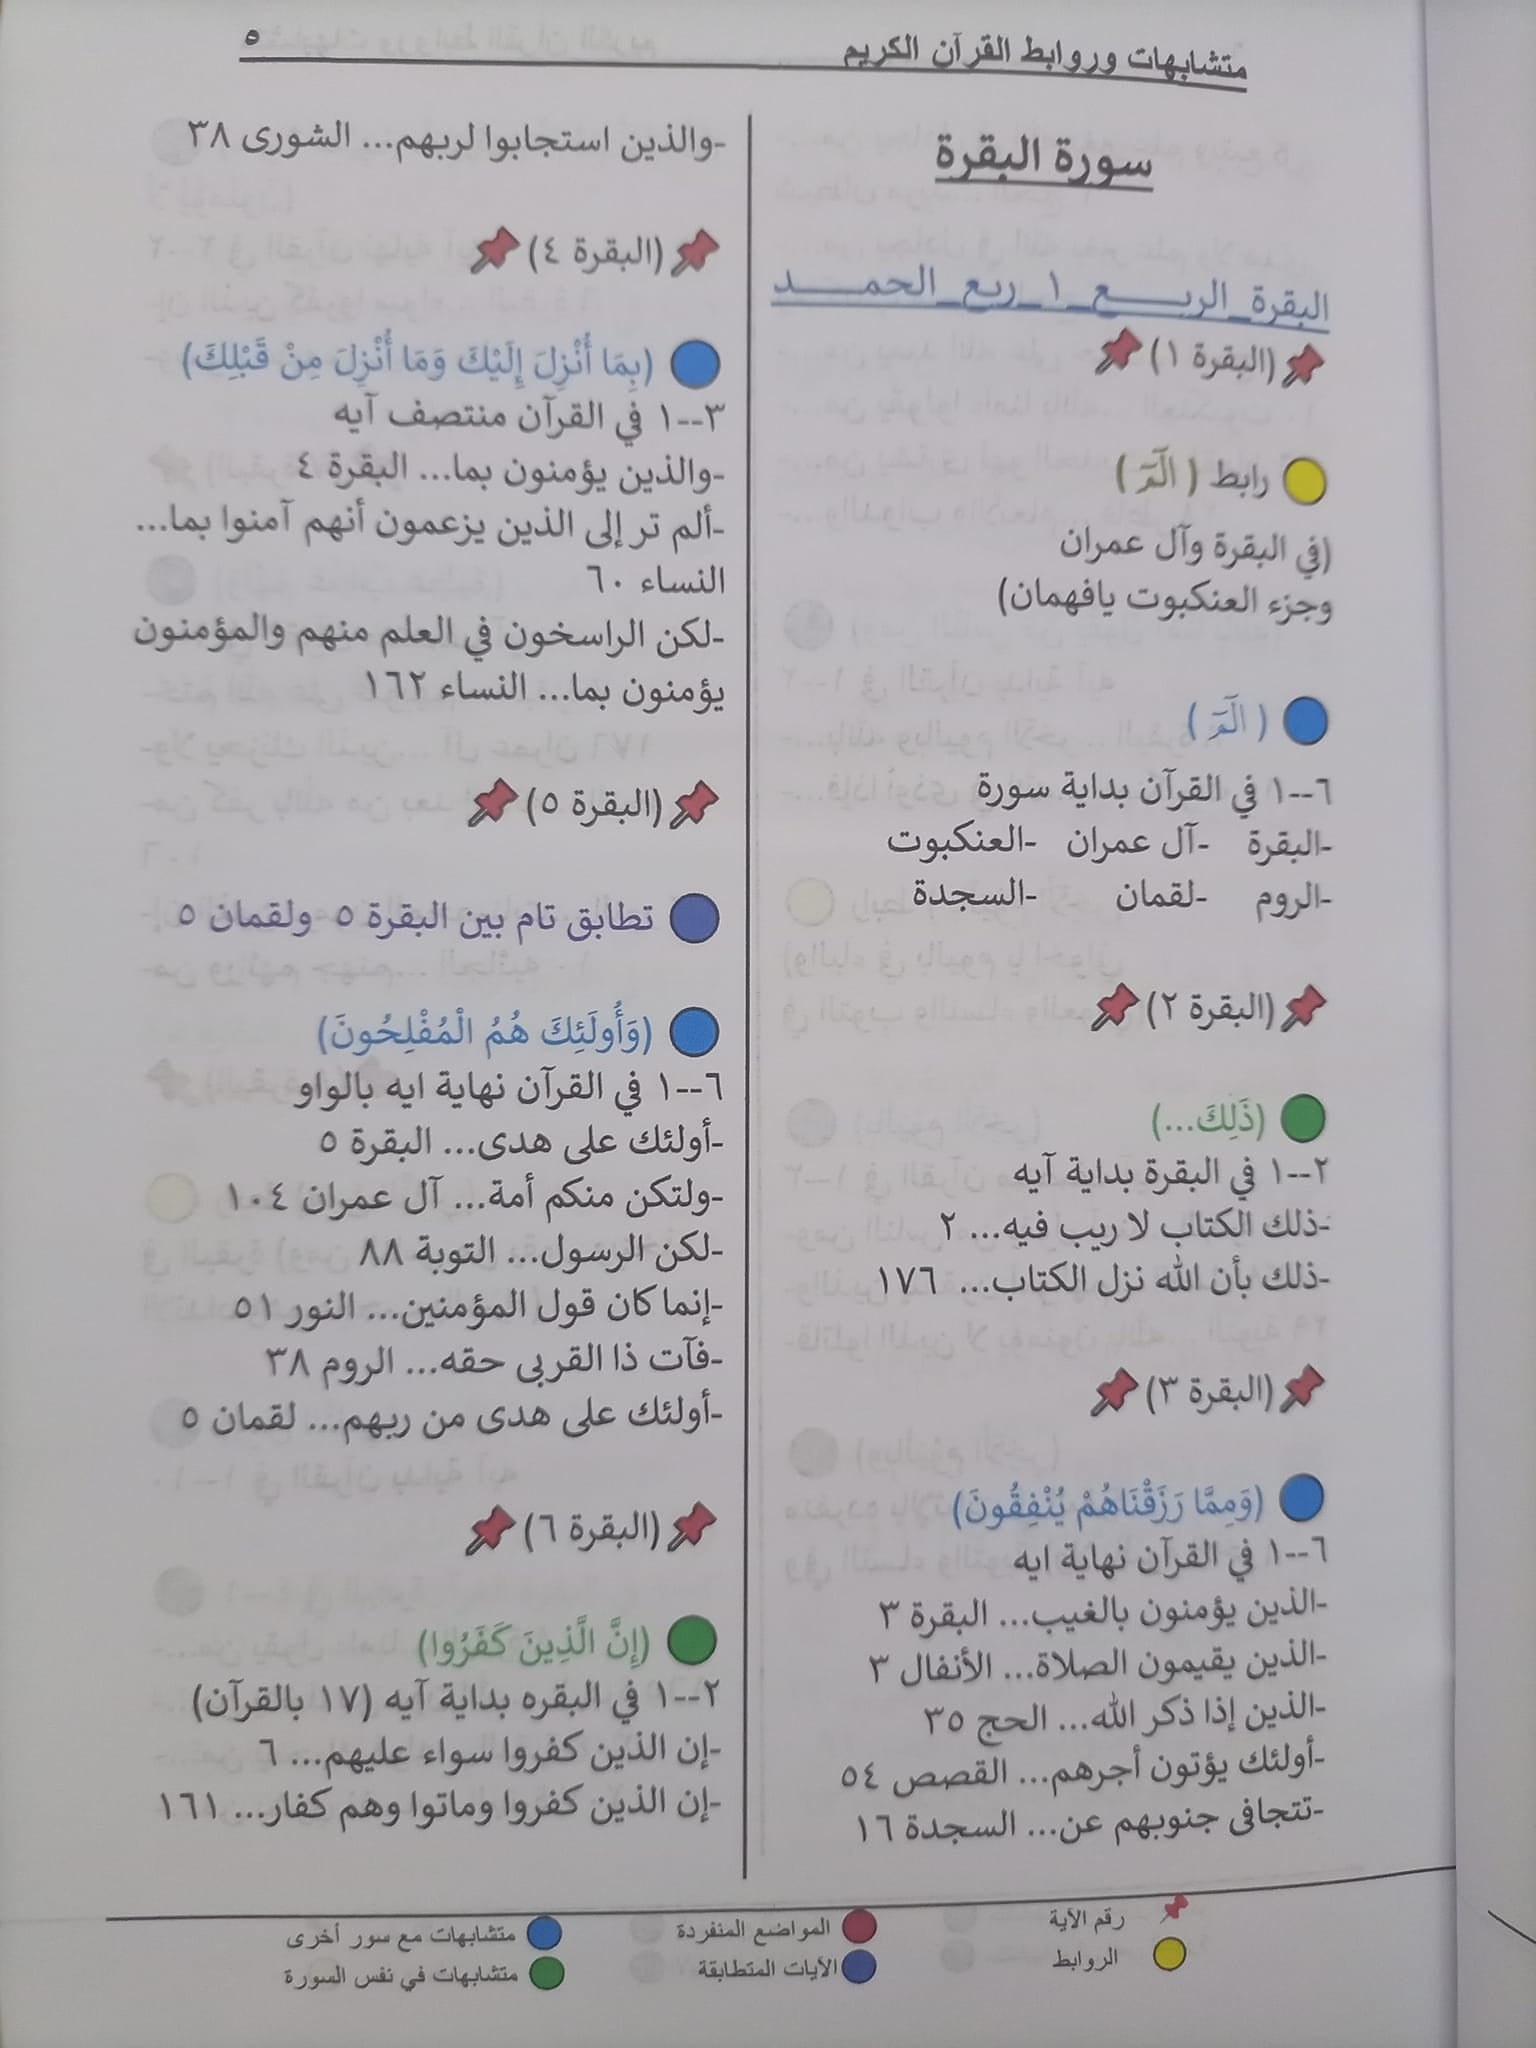 متشابهات وروابط القرآن الكريم
٥
سورة البقرة
البقرة_الربـــــع_١_ربع_الحمــــد
(البقرة ١)
رابط ( الٓمٓ )
(في البقرة وآل عمران
وجزء العنكبوت يافهمان)
( الٓمٓ )
٦--١ في القرآن بداية سورة
-البقرة -آل عمران -العنكبوت
-الروم -لقمان -السجدة
(البقرة ٢)
(ذَلِكَ...)
٢--١ في البقرة بداية آيه
-ذلك الكتاب لا ريب فيه... ٢
-ذلك بأن الله نزل الكتاب... ١٧٦
(البقرة ٣)
(وَمِمَّا رَزَقْنَاهُمْ يُنْفِقُونَ)
٦--١ في القرآن نهاية ايه
-الذين يؤمنون بالغيب... البقرة ٣
-الذين يقيمون الصلاة... الأنفال ٣
-الذين إذا ذكر الله... الحج ٣٥
-أولئك يؤتون أجرهم... القصص ٥٤
-تتجافى جنوبهم عن... السجدة ١٦
-والذين استجابوا لربهم... الشورى ٣٨
(البقرة ٤)
(بِمَا أُنْزِلَ إِلَيْكَ وَمَا أُنْزِلَ مِنْ قَبْلِكَ)
٣--١ في القرآن منتصف آيه
-والذين يؤمنون بما... البقرة ٤
-ألم تر إلى الذين يزعمون أنهم آمنوا بما...
النساء ٦٠
-لكن الراسخون في العلم منهم والمؤمنون
يؤمنون بما... النساء ١٦٢
(البقرة ٥)
تطابق تام بين البقرة ٥ ولقمان ٥
(وَأُولَئِكَ هُمُ الْمُفْلِحُونَ)
٦--١ في القرآن نهاية ايه بالواو
-أولئك على هدى... البقرة ٥
-ولتكن منكم أمة... آل عمران ١٠٤
-لكن الرسول... التوبة ٨٨
-إنما كان قول المؤمنين... النور ٥١
-فآت ذا القربى حقه... الروم ٣٨
-أولئك على هدى من ربهم... لقمان ٥
(البقرة ٦)
(إِنَّ الَّذِينَ كَفَرُوا)
٢--١ في البقره بداية آيه (١٧ بالقرآن)
-إن الذين كفروا سواء عليهم... ٦
-إن الذين كفروا وماتوا وهم كفار... ١٦١
رقم الآية
الروابط
المواضع المنفردة
الآيات المتطابقة
متشابهات مع سور أخرى
متشابهات في نفس السورة